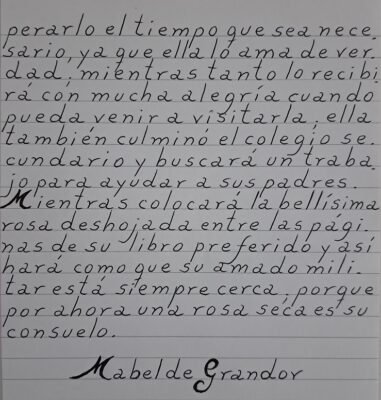 perarlo el tiempo que sea nece.
sario, ya que ella lo ama de ver.
dad, mientras tanto lo recibi.
rá con mucha alegría cuando
pueda venir a visitarla, ella
también culminó el colegio se.
cundario y buscará un traba.
jo para ayudar a sus padres.
Mientras colocará la bellísima
rosa deshojada entre las pági.
nas de su libro preferido y así
hará como que su amado mili.
tar está siempre cerca, porque
por ahora una rosa seca es su
consuelo.
Mabel de Grandor